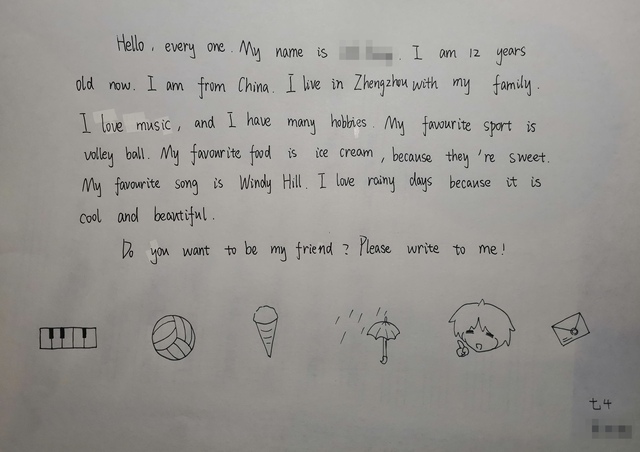 Hello, every one. My name is . I am 12 years
old now. I am from China. I live in Zhengzhou with my family.
I love music, and I have many hobbies. My favourite sport is
volley ball. My favourite food is ice cream, because they're sweet.
My favourite song is Windy Hill. I love rainy days because it is
cool and beautiful.
Do you want to be my friend? Please write to me!
七4